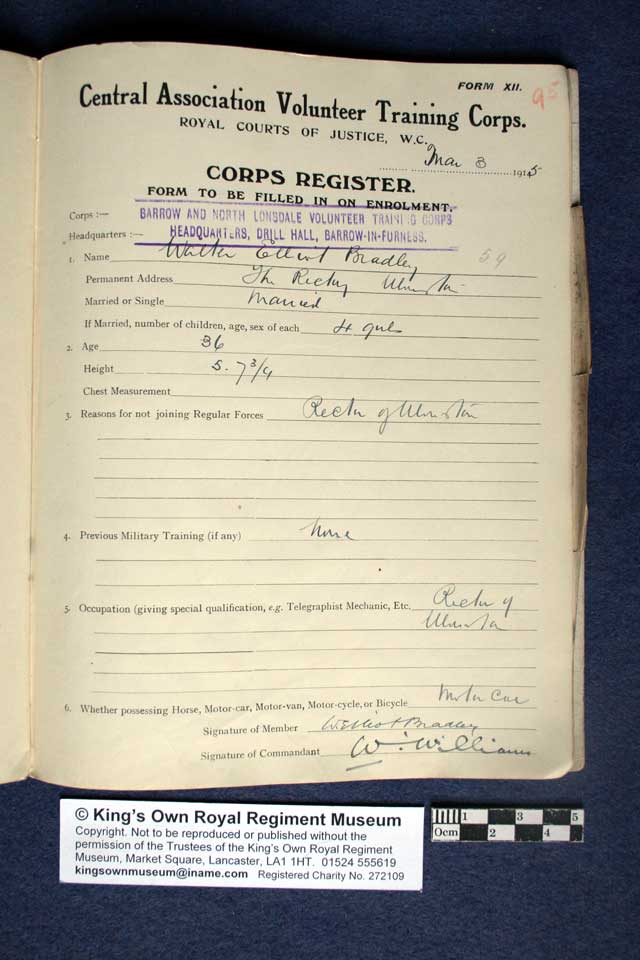 FORM XII.
95
Central Association Volunteer Training Corps.
ROYAL COURTS OF JUSTICE, W.C.
Mar 3 1915
CORPS REGISTER.
FORM TO BE FILLED IN ON ENROLMENT.
Corps :— BARROW AND NORTH LONSDALE VOLUNTEER TRAINING CORPS
Headquarters :— HEADQUARTERS, DRILL HALL, BARROW-IN-FURNESS.
1. Name Walter Elliot Bradley 59
Permanent Address The Rectory Ulverston
Married or Single Married
If Married, number of children, age, sex of each 4 girls
2. Age 36
Height 5. 7 3/4
Chest Measurement
3. Reasons for not joining Regular Forces Rector of Ulverston
4. Previous Military Training (if any) None
5. Occupation (giving special qualification, e.g. Telegraphist Mechanic, Etc. Rector of
Ulverston
6. Whether possessing Horse, Motor-car, Motor-van, Motor-cycle, or Bicycle Motor Car
Signature of Member W Elliot Bradley
Signature of Commandant W. Williams
© King's Own Royal Regiment Museum
Copyright. Not to be reproduced or published without the
permission of the Trustees of the King's Own Royal Regiment
Museum, Market Square, Lancaster, LA1 1HT. 01524 555619
kingsownmuseum@iname.com Registered Charity No. 272109
1 3 5
0cm 2 4